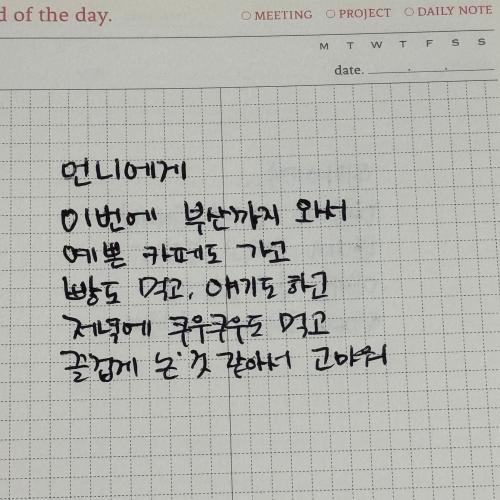 d of the day.
MEETING PROJECT DAILY NOTE
M T W T F S S
date. . .
언니에게
이번에 부산까지 와서
예쁜 카페도 가고
빵도 먹고, 얘기도 하고
저녁에 쿠우쿠우도 먹고
즐겁게 논 것 같아서 고마워